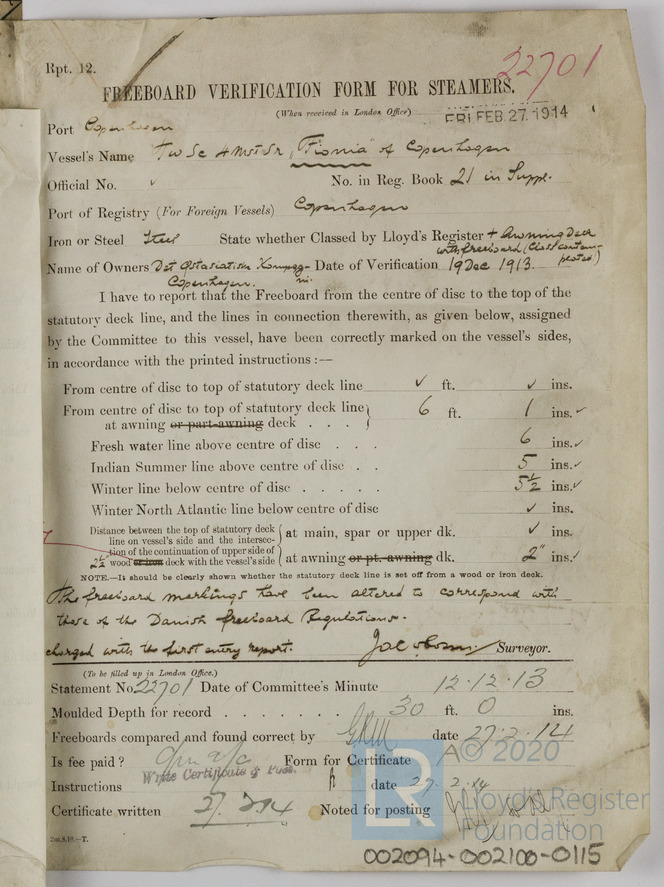 Rpt. 12.
22701
FREEBOARD VERIFICATION FORM FOR STEAMERS.
(When received in London Office) FRI FEB. 27. 1914
Port Copenhagen
Vessel's Name Tw Sc 4 Mst Sr "Fionia" of Copenhagen
Official No. ✓ No. in Reg. Book 21 in Suppl.
Port of Registry (For Foreign Vessels) Copenhagen
Iron or Steel Steel State whether Classed by Lloyd's Register + Awning Deck
with freeboard (Class contem-
plated)
Name of Owners Det Østasiatisk Kompag- Date of Verification 19 Dec 1913.
ni. Copenhagen.
I have to report that the Freeboard from the centre of disc to the top of the
statutory deck line, and the lines in connection therewith, as given below, assigned
by the Committee to this vessel, have been correctly marked on the vessel's sides,
in accordance with the printed instructions :—
From centre of disc to top of statutory deck line ✓ ft. ✓ ins.
From centre of disc to top of statutory deck line
at awning or part-awning deck . . . 6 ft. 1 ins. ✓
Fresh water line above centre of disc . . . 6 ins. ✓
Indian Summer line above centre of disc . . 5 ins. ✓
Winter line below centre of disc . . . . . 5½ ins. ✓
Winter North Atlantic line below centre of disc ✓ ins.
Distance between the top of statutory deck
line on vessel's side and the intersec-
tion of the continuation of upper side of
2½ wood or iron deck with the vessel's side
at main, spar or upper dk. ✓ ins.
at awning or pt. awning dk. 2" ins. ✓
NOTE.—It should be clearly shown whether the statutory deck line is set off from a wood or iron deck.
The freeboard markings have been altered to correspond with
those of the Danish freeboard Regulations.
charged with the first entry report. Surveyor.
(To be filled up in London Office.)
Statement No. 22701 Date of Committee's Minute 12.12.13
Moulded Depth for record . . . . . . . 30 ft. 0 ins.
Freeboards compared and found correct by date 27.2.14
Is fee paid? Form for Certificate A
Write Certificate & Post.
Instructions date 27.2.14
Certificate written 27.2.14 Noted for posting
2m,8,10.—T.
© 2020
LR
Lloyd's Register
Foundation
002094-002100-0115